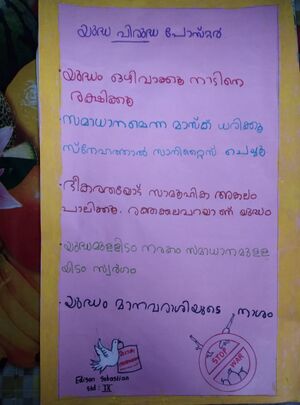 യുദ്ധ വിരുദ്ധ പോസ്റ്റർ
• യുദ്ധം ഒഴിവാക്കൂ നാടിനെ
രക്ഷിക്കൂ
• സമാധാനമെന്ന മാസ്ക് ധരിക്കൂ
സ്നേഹത്താൽ സാനിറ്റൈസ് ചെയ്യൂ
• ഭീകരതയോട് സാമൂഹിക അകലം
പാലിക്കൂ. രക്തക്കലവറയാണ് യുദ്ധം
• യുദ്ധമുള്ളിടം നരകം സമാധാനമുള്ള
യിടം സ്വർഗം
• യുദ്ധം മാനവരാശിയുടെ നാശം
STOP
WAR
Edison Sebastian
Std : IX